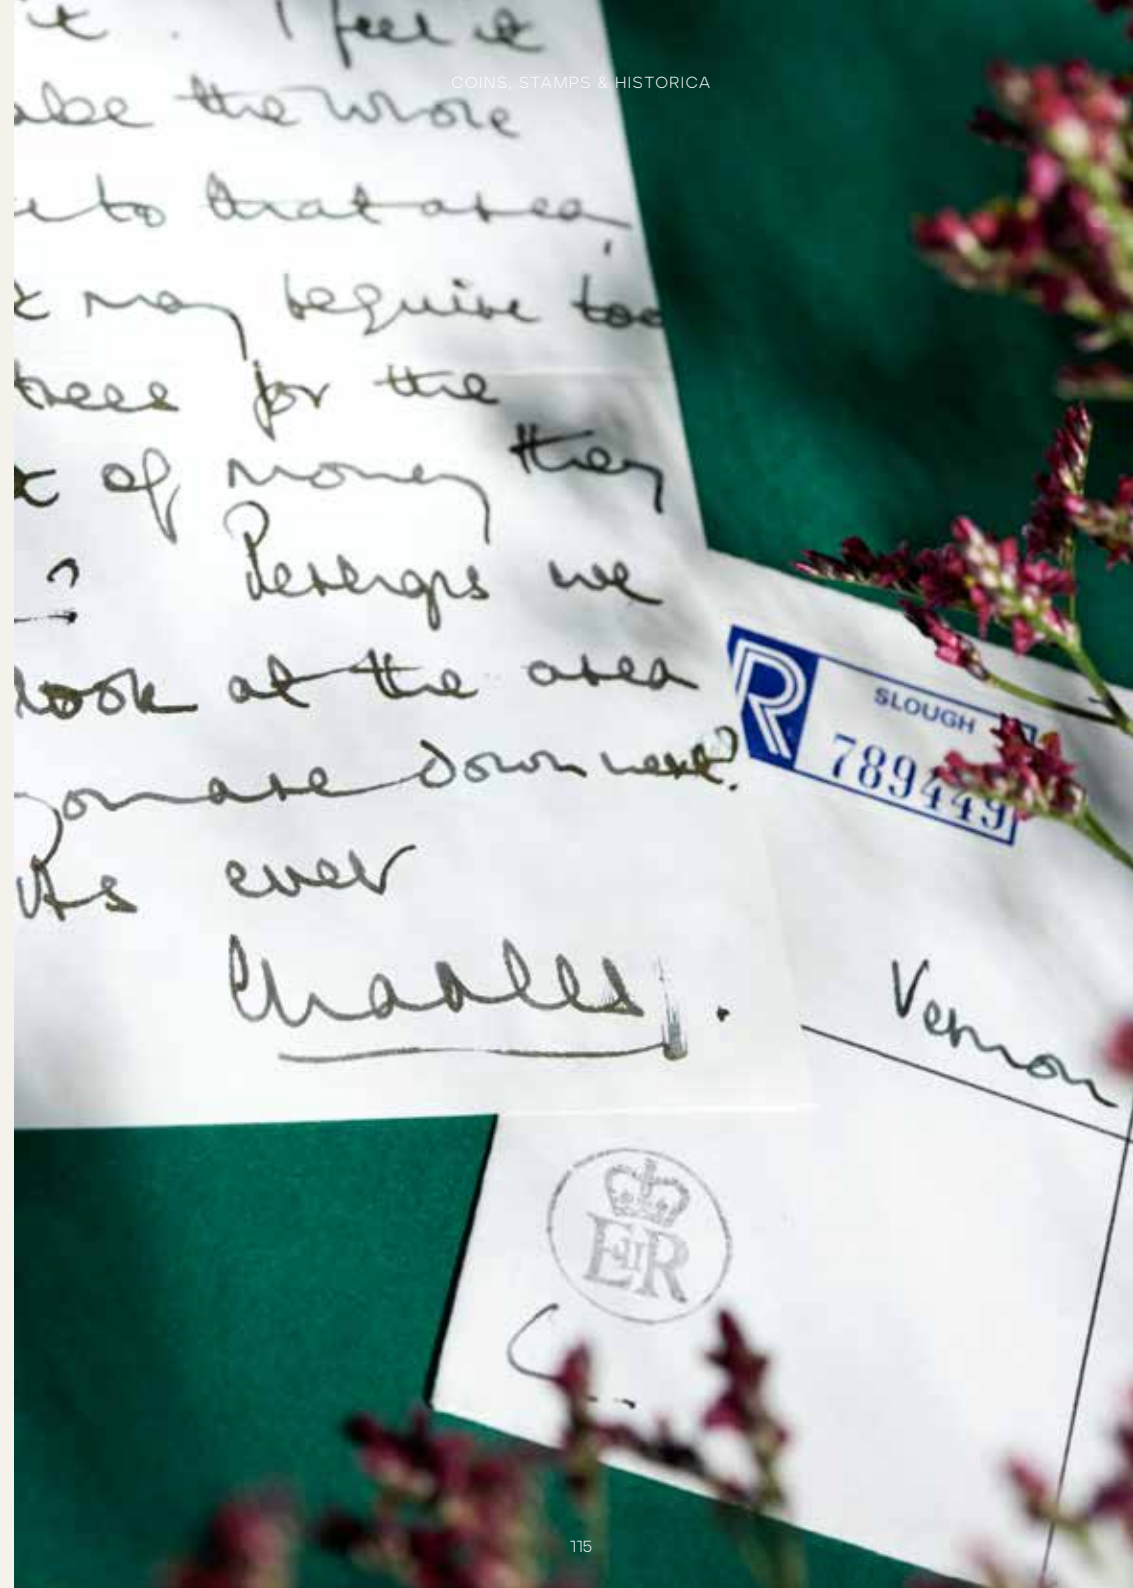 COINS, STAMPS & HISTORICA
it. I feel it
the whole
to that area,
may require too
trees for the
of money they
? Perhaps we
look at the area
you are down here?
As ever
Charles.
R SLOUGH
789449
Vernon
EIIR
C
115